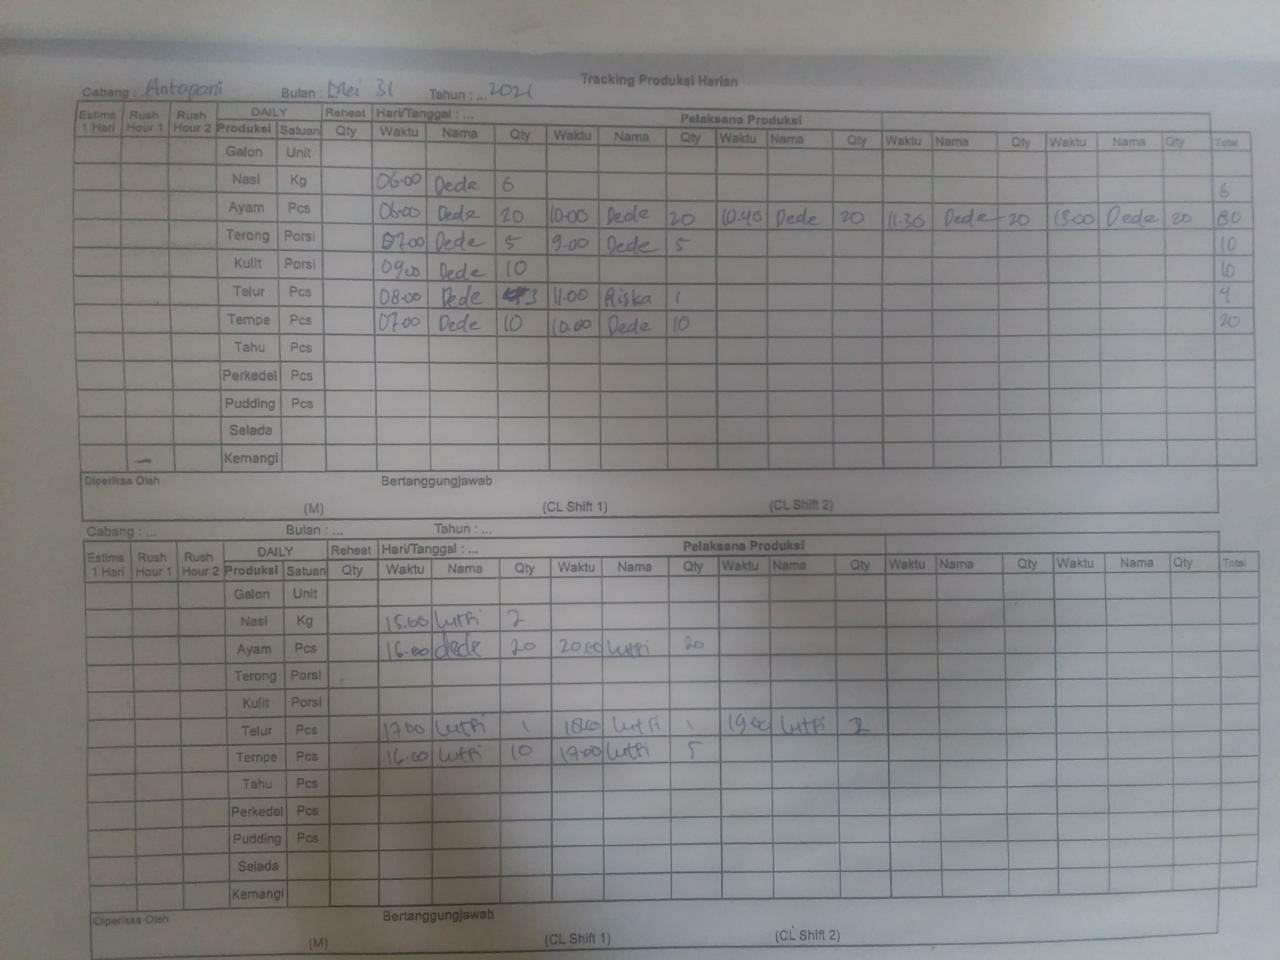 Tracking Produksi Harian
Cabang : Antapani Bulan : Mei 31 Tahun : ... 2021
Estima 1 Hari Rush Hour 1 Rush Hour 2 DAILY Reheat Hari/Tanggal : ... Pelaksana Produksi
Produksi Satuan Qty Waktu Nama Qty Waktu Nama Qty Waktu Nama Qty Waktu Nama Qty Waktu Nama Qty Total
Galon Unit
Nasi Kg 06.00 Dede 6 6
Ayam Pcs 06.00 Dede 20 10.00 Dede 20 10.40 Dede 20 11.30 Dede 20 13.00 Dede 20 80
Terong Porsi 07.00 Dede 5 9.00 Dede 5 10
Kulit Porsi 09.00 Dede 10 10
Telur Pcs 08.00 Dede 3 11.00 Riska 1 4
Tempe Pcs 07.00 Dede 10 10.00 Dede 10 20
Tahu Pcs
Perkedel Pcs
Pudding Pcs
Selada
Kemangi
Diperiksa Oleh Bertanggungjawab
(M) (CL Shift 1) (CL Shift 2)
Cabang : ... Bulan : ... Tahun : ...
Estima 1 Hari Rush Hour 1 Rush Hour 2 DAILY Reheat Hari/Tanggal : ... Pelaksana Produksi
Produksi Satuan Qty Waktu Nama Qty Waktu Nama Qty Waktu Nama Qty Waktu Nama Qty Waktu Nama Qty Total
Galon Unit
Nasi Kg 15.00 Lutfi 2
Ayam Pcs 16.00 dede 20 20.00 Lutfi 20
Terong Porsi
Kulit Porsi
Telur Pcs 17.00 Lutfi 1 18.00 Lutfi 1 19.00 Lutfi 2
Tempe Pcs 16.00 Lutfi 10 19.00 Lutfi 5
Tahu Pcs
Perkedel Pcs
Pudding Pcs
Selada
Kemangi
Diperiksa Oleh Bertanggungjawab
(M) (CL Shift 1) (CL Shift 2)